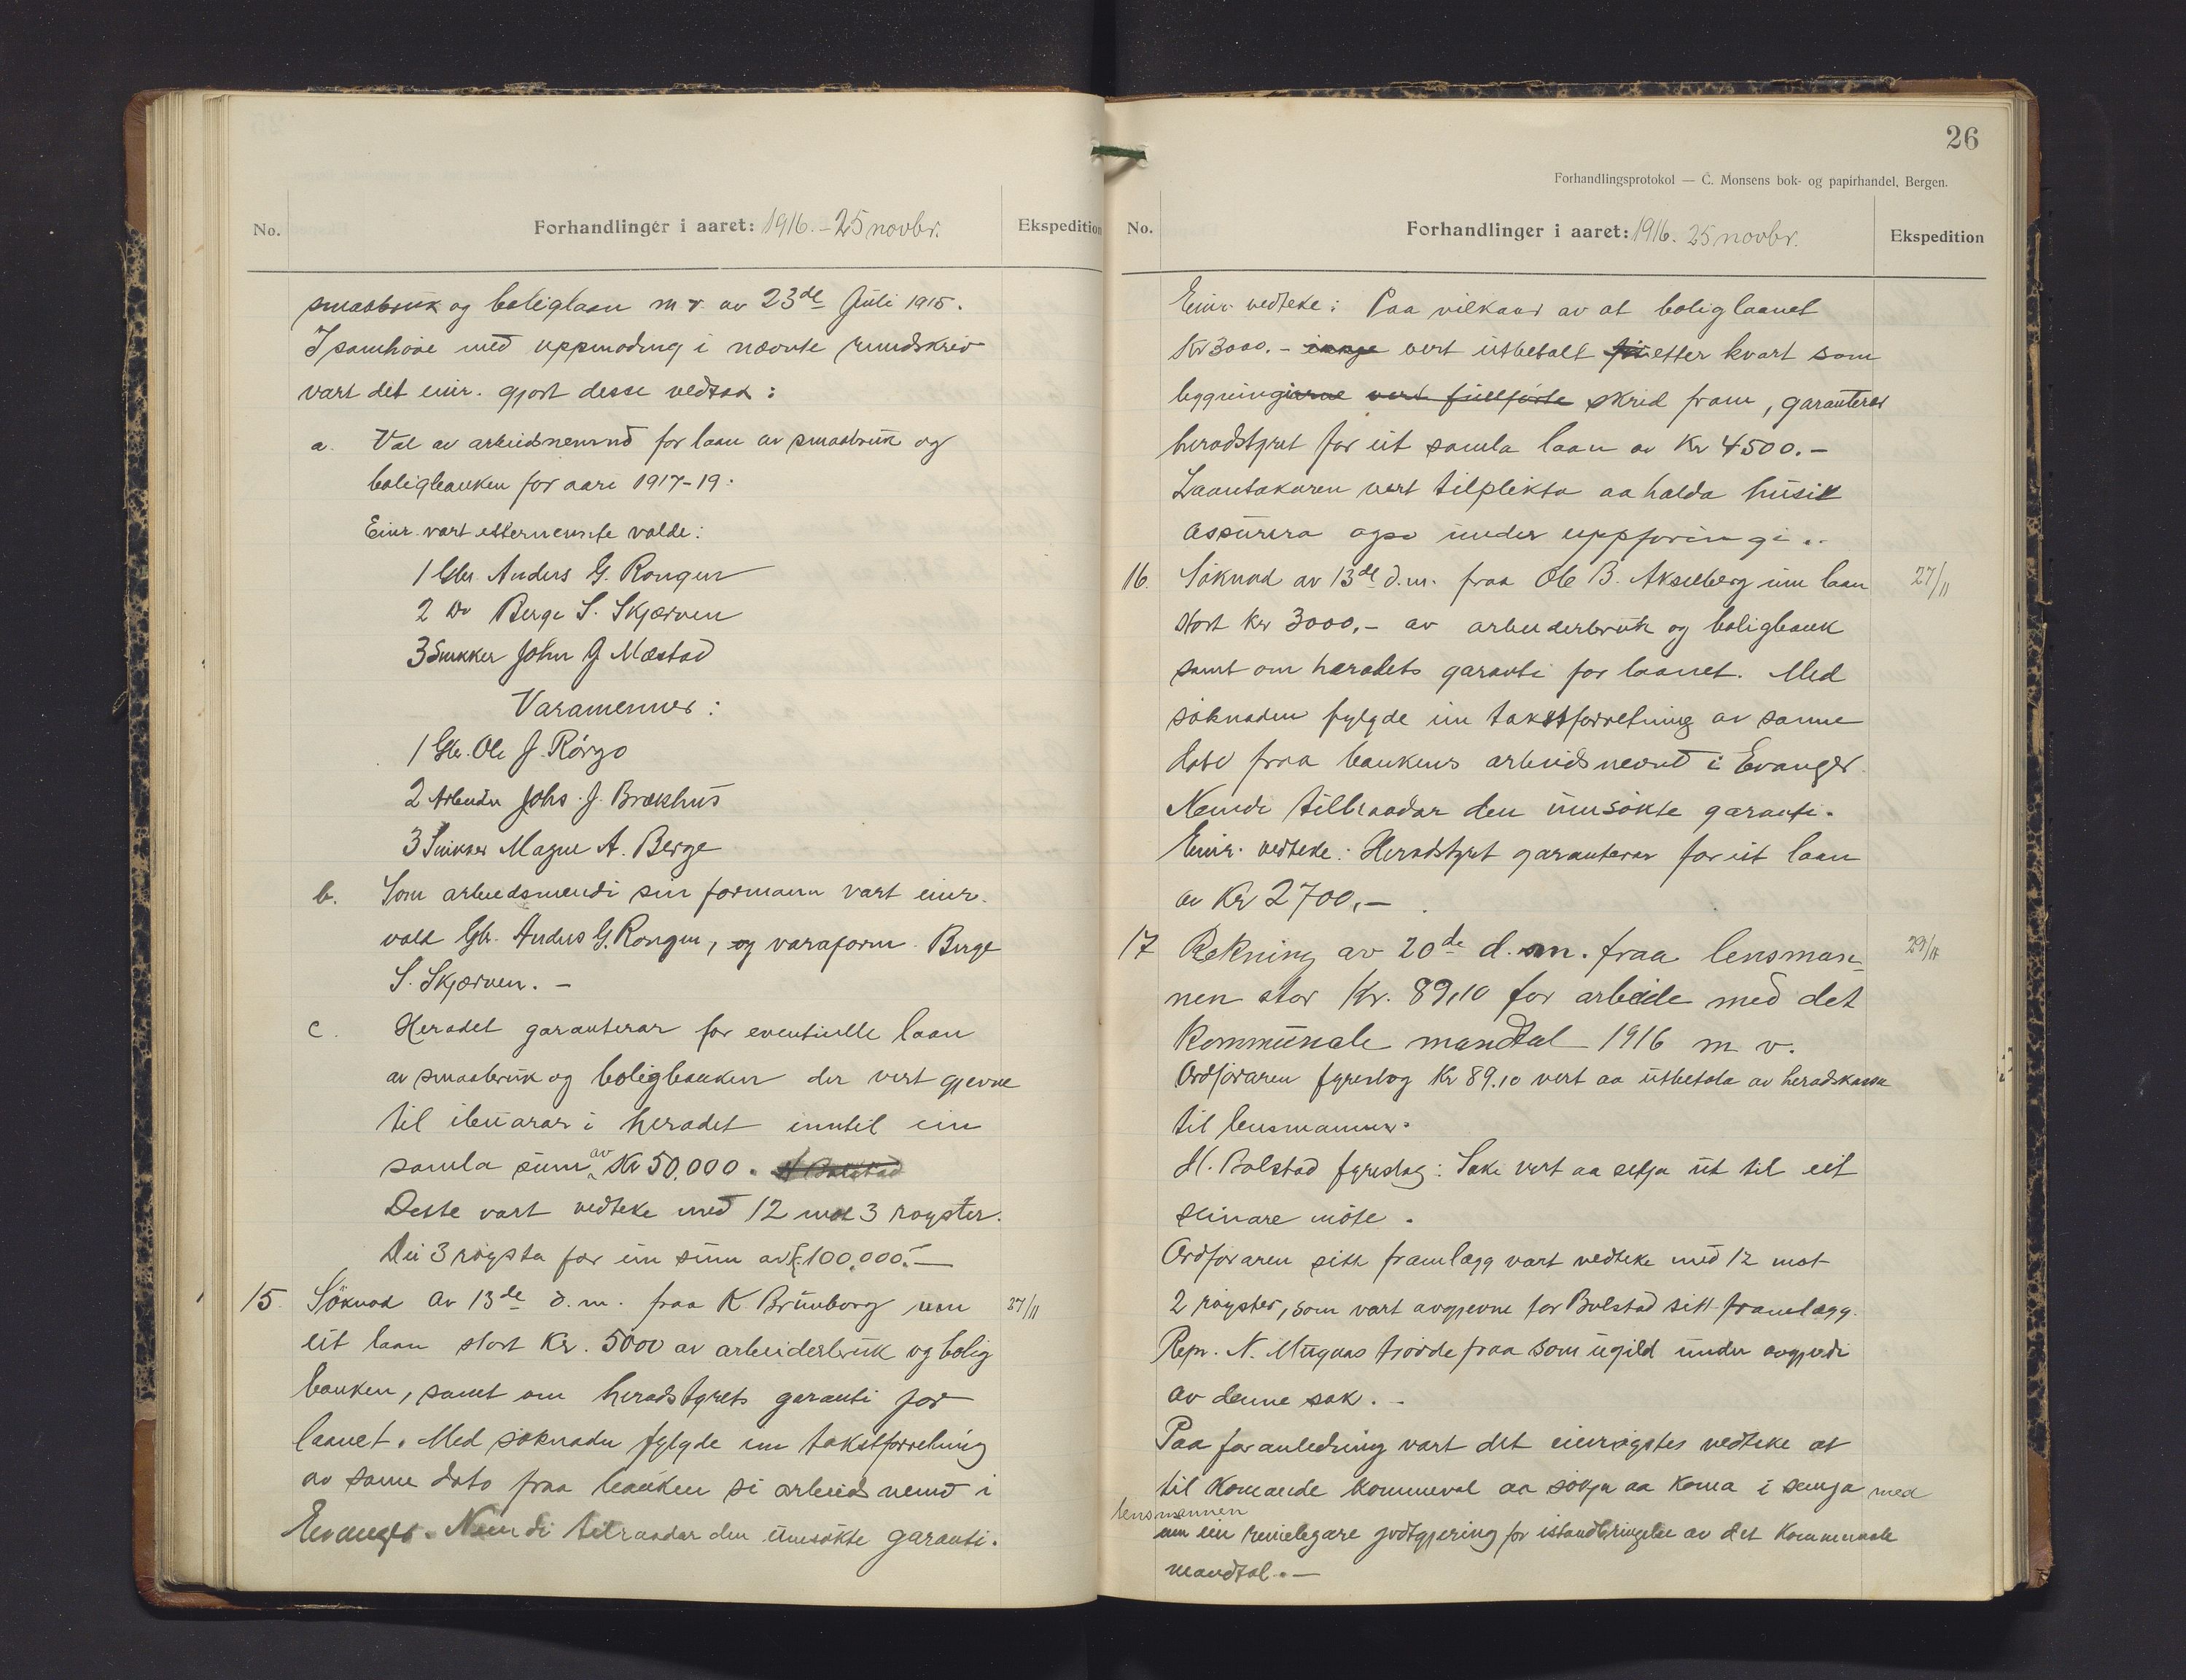 No.
Forhandlinger i aaret: 1916. - 25 novbr.
Ekspedition
smaabruk og boliglaan m v. av 23de Juli 1915.
I samhøve med uppmoding i nævnte rundskriv
vart det einr. gjort desse vedtak:
a. Val av arbeidsnemnd for laan av smaabruk og
boligbanken for aari 1917-19.
Einr. vart etternemnte valde:
1 Gbr. Anders G. Rongen
2 Do Berge S. Skjerven
3 Snikker John J Mæstad
Varamenner:
1 Gbr. Ole J. Rørgo
2 Arbeider Johs. J. Brækhus
3 Snikker Magne A. Berge
b. Som arbeidsnemdi sin formann vart einr.
vald Gbr. Anders G. Rongen, og varaform. Berge
S. Skjerven. -
c. Heradet garanterar for eventuelle laan
av smaabruk og boligbanken der vert gjevne
til ibuarar i heradet inntil ein
samla sum av Kr 50,000.
Dette vart vedteke med 12 mot 3 røyster.
Dei 3 røysta for ein sum av K. 100,000.-
15. Søknad av 13de d.m. fraa K. Brunborg um
eit laan stort Kr. 5000 av arbeiderbruk og bolig
banken, samt om heradstyrets garanti for
laanet. Med søknaden fylgde ein takstforretning
av same dato fraa banken si arbeidsnemd i
Evanger. Nemdi tilraadar den umsøkte garanti.
27/11
26
Forhandlingsprotokol — C. Monsens bok- og papirhandel, Bergen.
No.
Forhandlinger i aaret: 1916. 25 novbr.
Ekspedition
Einr. vedteke: Paa vilkaar av at boliglaanet
Kr 3000.- ikkje vert utbetalt etter kvart som
bygningarne vert fullførte skrid fram, garanterer
heradstyret for eit samla laan av Kr 4500.-
Laantakaren vert tilplikta aa halda husit
assurera ogso under uppføringi..
16. Søknad av 13de d.m. fraa Ole B. Akselberg um laan
stort Kr 3000,- av arbeiderbruk og boligbank
samt om heradets garanti for laanet. Med
søknaden fylgde ein takstforretning av samme
dato fraa bankens arbeidsnevnd i Evanger.
Nemdi tilraadar den umsøkte garanti.
Einr. vedteke: Heradstyret garanterar for eit laan
av Kr 2700,-
27/11
17 Rekning av 20de d.m. fraa lensman-
nen stor Kr. 89,10 for arbeide med det
kommunale mandtal 1916 m v.
29/11
Ordføraren fyreslog Kr 89.10 vert aa utbetala av heradskassa
til lensmannen.
H. Bolstad fyreslog: Saki vert aa setja ut til eit
seinare møte.
Ordføraren sitt framlegg vart vedteke med 12 mot
2 røyster, som vart avgjevne for Bolstad sitt framlegg.
Repr. N. Mugaas trødde fraa som ugild under avgjerdi
av denne sak. -
Paa foranledning vart det einrøystes vedteke at
til komande kommeval aa søkja aa koma i semja med
lensmannen
um ein rimelegare godtgjering for istandbringelse av det kommunale
mandtal. -